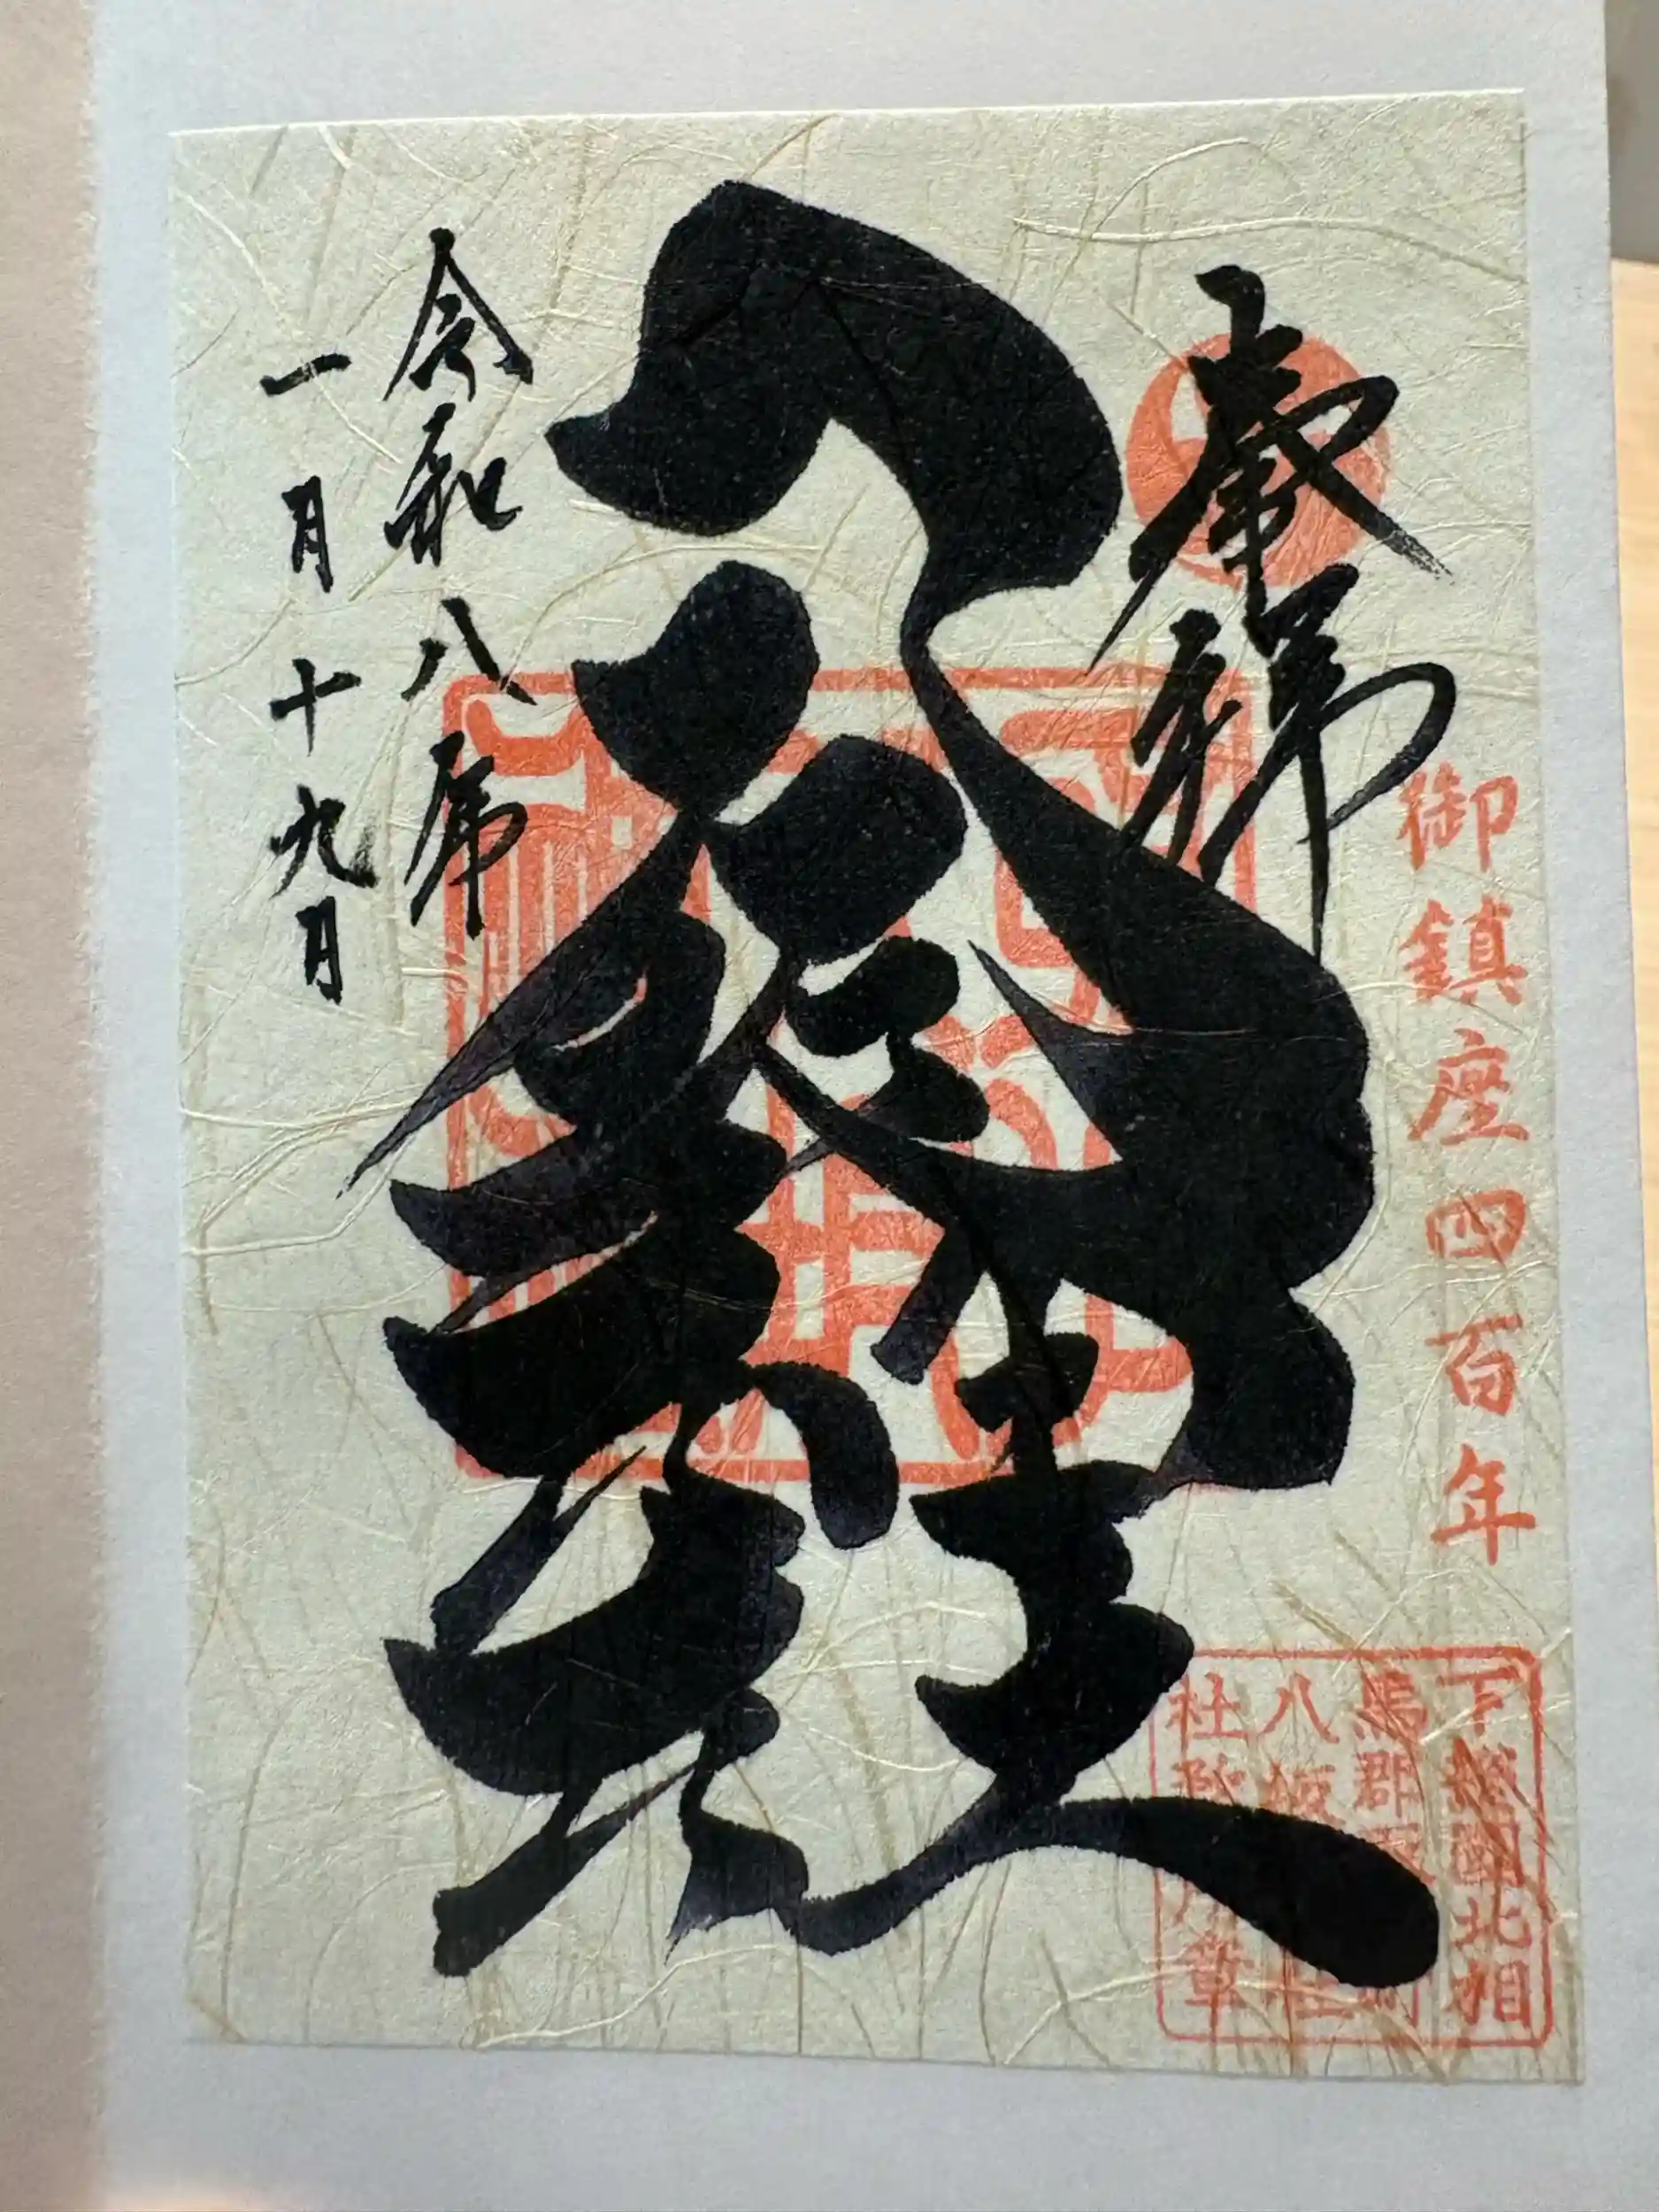 奉拝
御鎮座四百年
八坂神社
令和八年
一月十九日
下総國北相
馬郡
八坂神社
社務所章